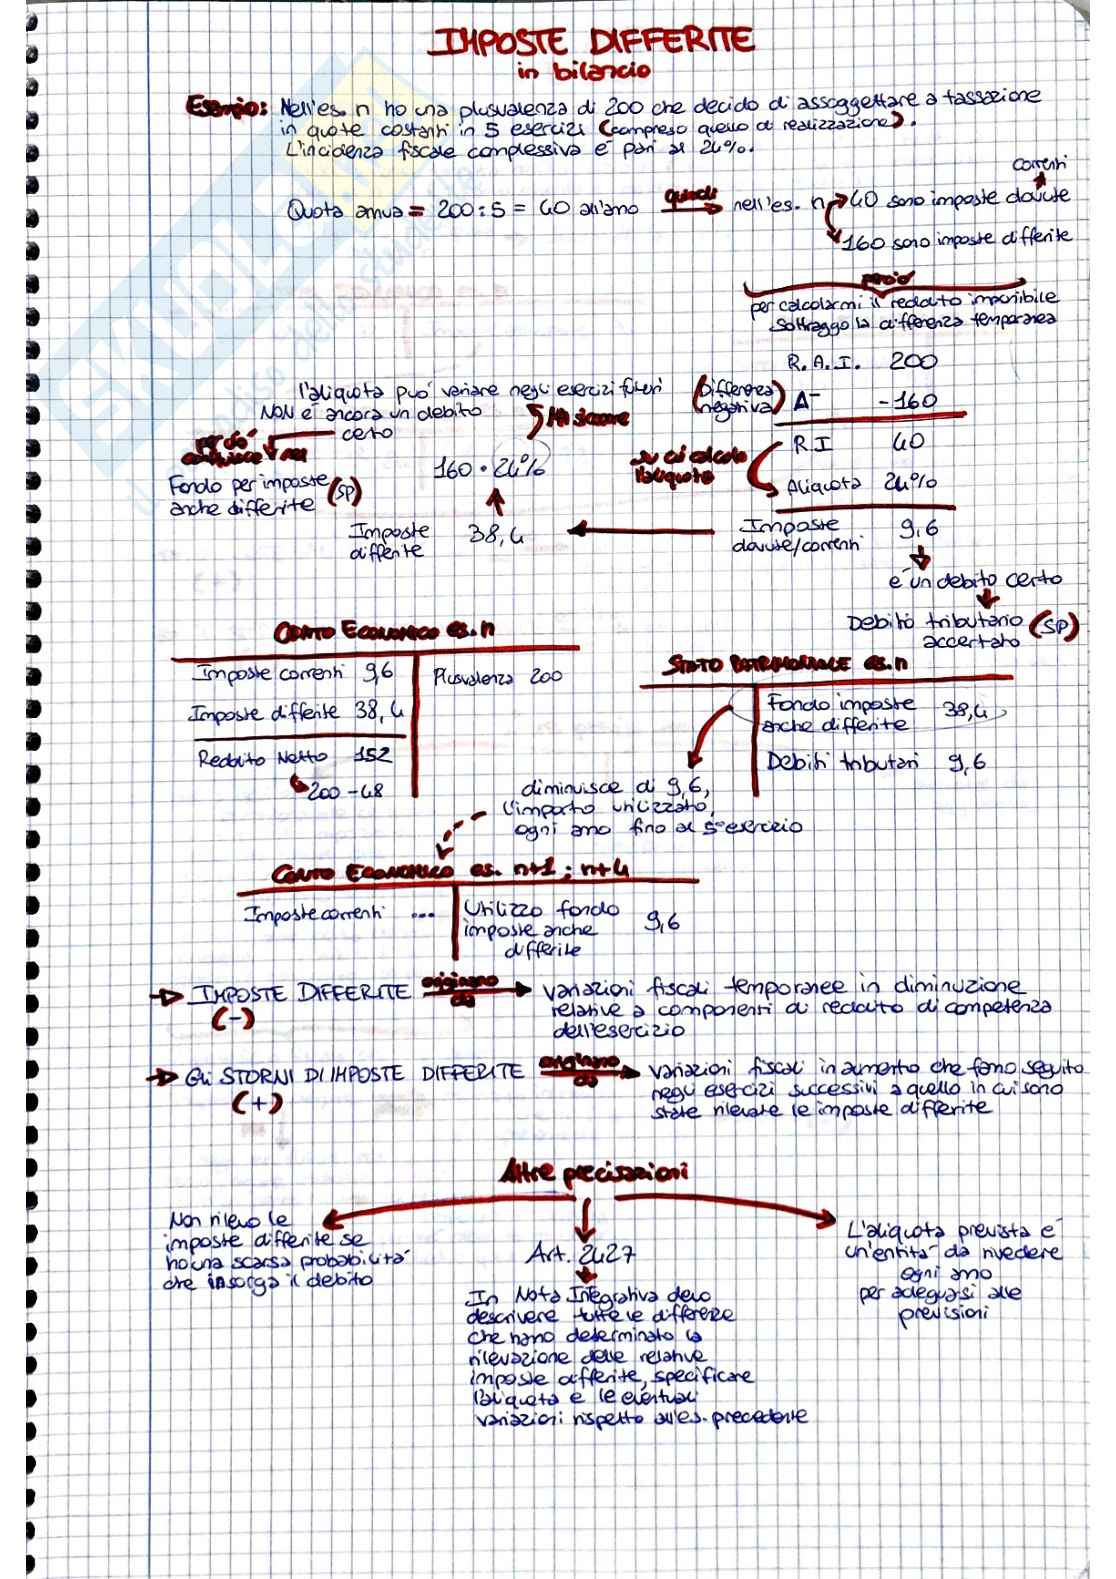 IMPOSTE DIFFERITE
in bilancio
Esempio: Nell'es. n ho una plusvalenza di 200 che decido di assoggettare a tassazione
in quote costanti in 5 esercizi (compreso quello di realizzazione).
L'incidenza fiscale complessiva è pari al 24%.
Quota annua = 200:5 = 40 all'anno quindi nell'es. n 40 sono imposte dovute
correnti
160 sono imposte differite
perciò
per calcolarmi il reddito imponibile
sottraggo la differenza temporanea
R.A.I. 200
(Differenza negativa) Δ- -160
R.I 40
su cui calcolo l'aliquota
Aliquota 24%
Imposte dovute/correnti 9,6
è un debito certo
Debito tributario accertato (SP)
l'aliquota può variare negli esercizi futuri
NON è ancora un debito
certo
perciò confluisce nel
Fondo per imposte
anche differite (SP)
160 • 24%
Imposte
differite 38,4
CONTO ECONOMICO es. n
Imposte correnti 9,6 Plusvalenza 200
Imposte differite 38,4
Reddito Netto 152
200-48
STATO PATRIMONIALE es. n
Fondo imposte
anche differite 38,4
Debiti tributari 9,6
diminuisce di 9,6,
l'importo utilizzato,
ogni anno fino al 5° esercizio
CONTO ECONOMICO es. n+1 ; n+4
Imposte correnti ... Utilizzo fondo
imposte anche 9,6
differite
IMPOSTE DIFFERITE originano da variazioni fiscali temporanee in diminuzione
(-) relative a componenti di reddito di competenza
dell'esercizio
Gli STORNI DI IMPOSTE DIFFERITE originano da variazioni fiscali in aumento che fanno seguito
(+) negli esercizi successivi a quello in cui sono
state rilevate le imposte differite
Altre precisazioni
Non rilevo le
imposte differite se
ho una scarsa probabilità
che insorga il debito
Art. 2427
In Nota Integrativa devo
descrivere tutte le differenze
che hanno determinato la
rilevazione delle relative
imposte differite, specificare
l'aliquota e le eventuali
variazioni rispetto all'es. precedente
L'aliquota prevista è
un'entità da rivedere
ogni anno
per adeguarsi alle
previsioni